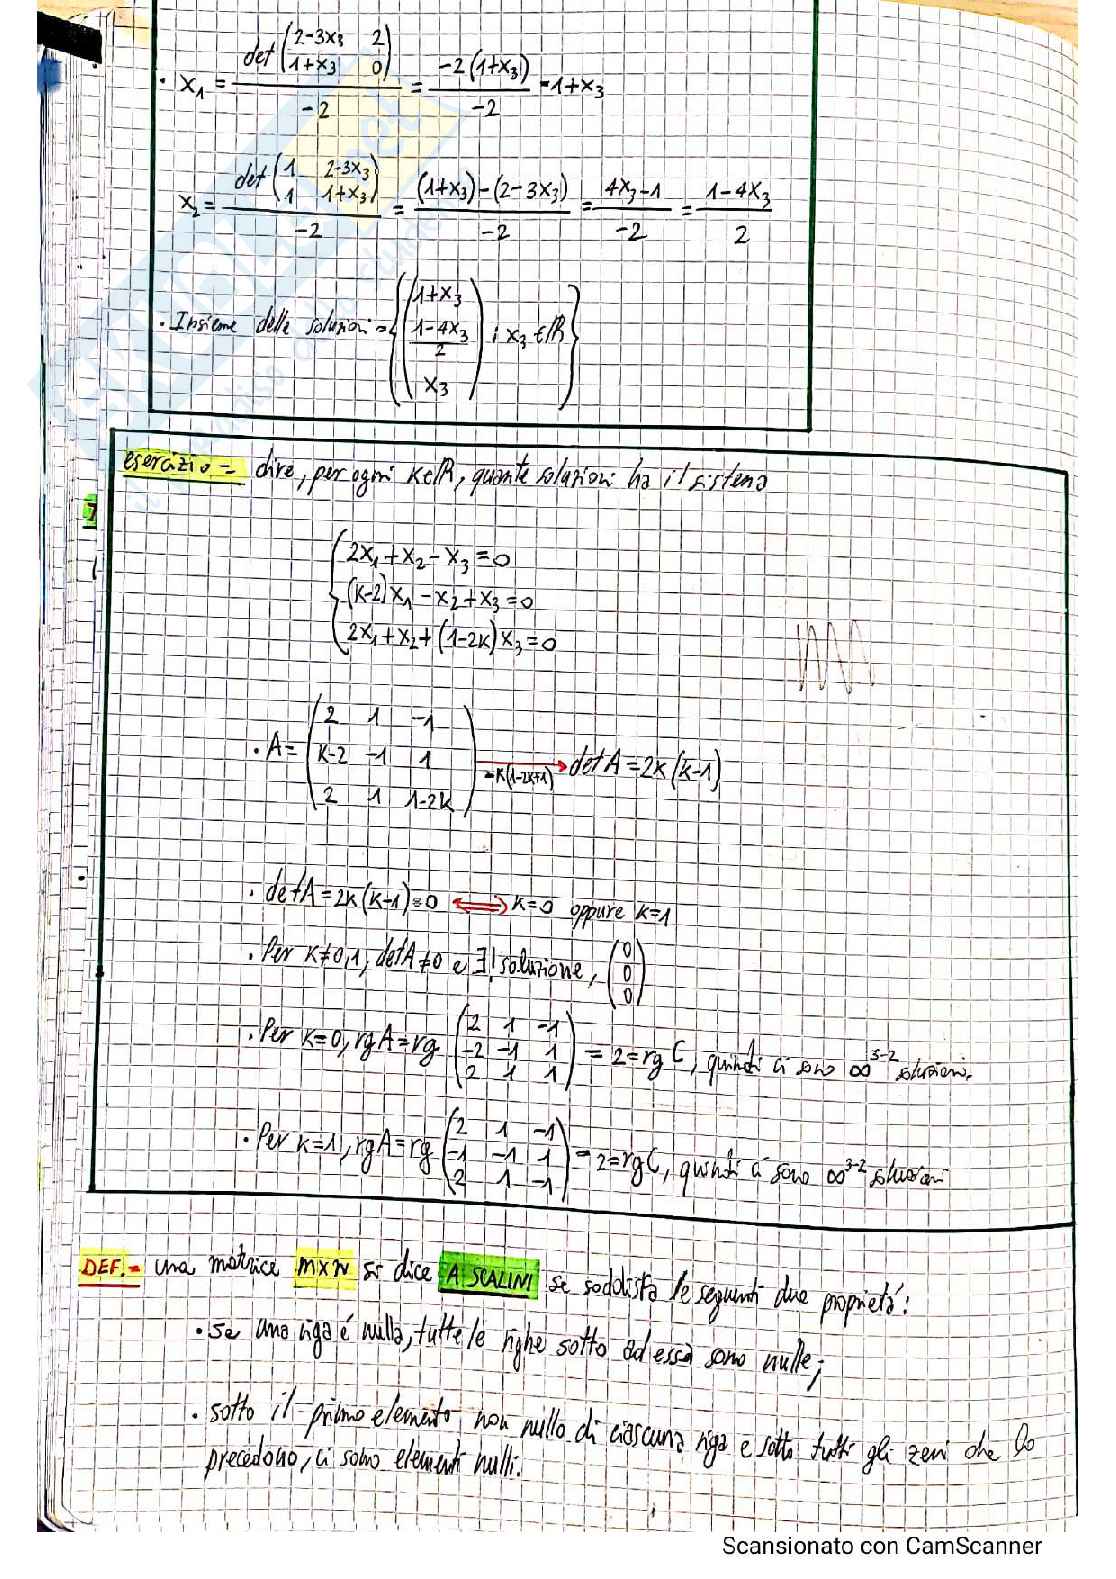 • x₁ = det(2-3x₃ 2 / 1+x₃ 0) / -2 = -2(1+x₃) / -2 = 1+x₃
x₂ = det(1 2-3x₃ / 1 1+x₃) / -2 = (1+x₃)-(2-3x₃) / -2 = 4x₃-1 / -2 = 1-4x₃ / 2
• Insieme delle soluzioni = {(1+x₃ / (1-4x₃)/2 / x₃) : x₃ ∈ ℝ}
esercizio = dire, per ogni k∈ℝ, quante soluzioni ha il sistema
2x₁+x₂-x₃=0
(k-2)x₁-x₂+x₃=0
2x₁+x₂+(1-2k)x₃=0
• A = (2 1 -1 / k-2 -1 1 / 2 1 1-2k) → -k(1-2k+1) det A = 2k(k-1)
• det A = 2k(k-1)=0 ⟺ k=0 oppure k=1
• Per k≠0,1, det A≠0 e ∃! soluzione, (0 / 0 / 0)
• Per k=0, rg A = rg (2 1 -1 / -2 -1 1 / 2 1 1) = 2 = rg C, quindi ci sono ∞³⁻² soluzioni.
• Per k=1, rg A = rg (2 1 -1 / -1 -1 1 / 2 1 -1) = 2 = rg C, quindi ci sono ∞³⁻² soluzioni
DEF.= una matrice m×n si dice A SCALINI se soddisfa le seguenti due proprietá:
• se una riga é nulla, tutte le righe sotto ad essa sono nulle;
• sotto il primo elemento non nullo di ciascuna riga e sotto tutti gli zeri che lo
precedono, ci sono elementi nulli.
Scansionato con CamScanner